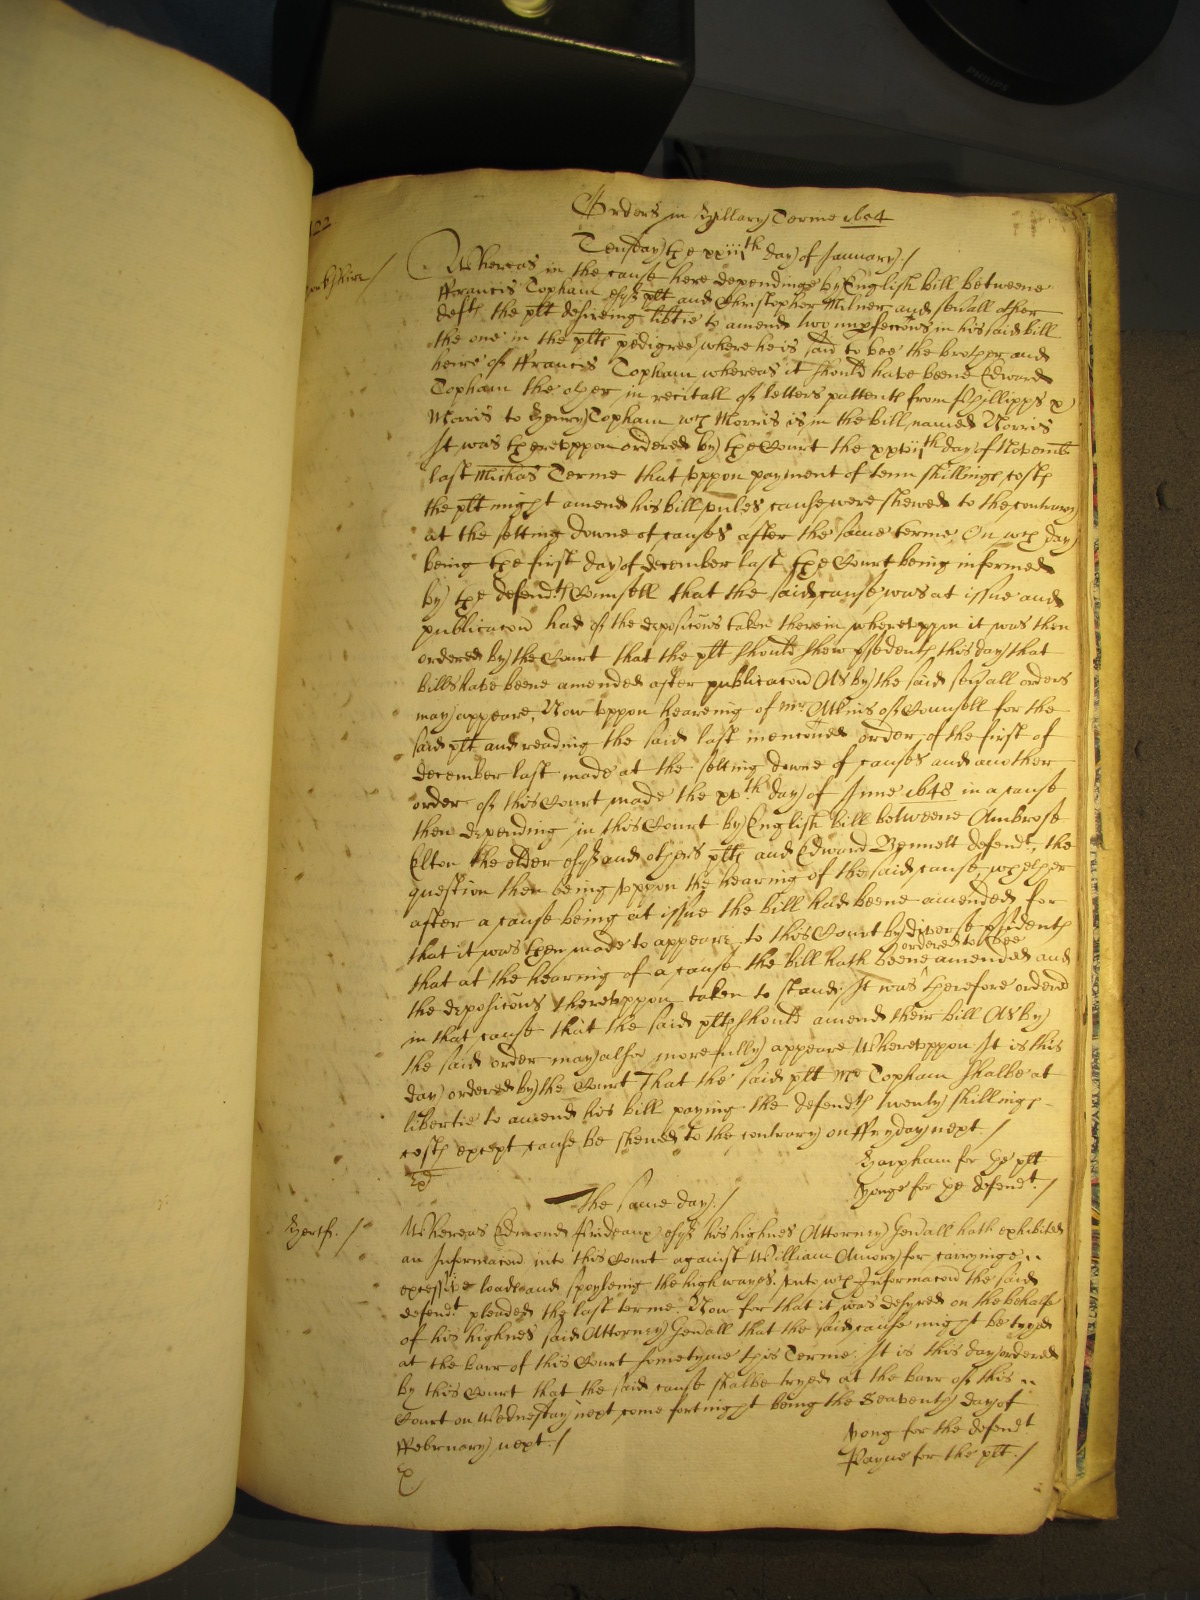 Orders in Hillary Terme 1654
122
Tewsday the xxiiith day of January./
Yorkshire /
Whereas in the cause here dependinge by English bill betweene
Ffrancis Topham esqr plt and Christopher Milner and sevall other
defts the plt desireing libtie to amend two impfecons in his said bill
the one in the plts pedigree where he is said to bee the brother and
heire of Ffrancis Topham whereas it should have beene Edward
Topham the other in recitall of letters pattents from Phillipps &
Morris to Henry Topham wch Morris is in the bill named Norris
It was thereuppon ordered by the Court the xxviith day of Novemb
last Michas Terme that uppon payment of tenn shillings costs
the plt might amend his bill unles cause were shewed to the contrary
at the setting downe of causes after the same terme On wch day
being the first day of december last the Court being informed
by the defendts Counsell that the said cause was at issue and
publicacon had of the deposicons taken therein whereuppon it was then
ordered by the Court that the plt should shew psedents this day that
bills have beene amended after publicacon As by the said sevall orders
may appeare, Now uppon hearing of mr Atkins of Counsell for the
said plt and reading the said last menconed order of the first of
december last made at the setting downe of causes and another
order of this Court made the xxth day of June 1648 in a cause
then depending in this Court by English bill betweene Ambrose
Elton the elder esqr and others plts and Edward Bennett defendt, the
question then being uppon the hearing of the said cause whether
after a cause being at issue the bill had beene amended for
that it was then made to appeare to this Court by diverse psidents
that at the hearing of a cause the bill hath beene ordered to bee amended and
the deposicons thereuppon taken to stand; It was therefore ordered
in that cause that the said plts should amend their bill As by
the said order may also more fully appeare Whereuppon It is this
day ordered by the Court That the said plt mr Topham shalbe at
libertie to amend his bill paying the defendts twenty shillings
costs except cause be shewed to the contrary on Ffryday next /
Harpham for the plt
Yonge for the defendt. /
The same day: /
Hertf. /
Whereas Edmond Prideaux esqr his highnes Attorney Genall hath exhibited
an Informacon into this Court against William Amory for carryinge
excessive loads and spoyleing the highwayes, unto wch Informacon the said
defendt pleaded the last terme. Now for that it was desyred on the behalfe
of his highnes said Attorney Genall that the said cause might be tryed
at the barr of this Court sometyme this Terme. It is this day ordered
by this Court that the said cause shalbe tryed at the barr of this
Court on Wednesday next come fortnight being the Seaventh day of
Ffebruary next. /
Yong for the defendt
Payne for the plt. /
PHILIPS